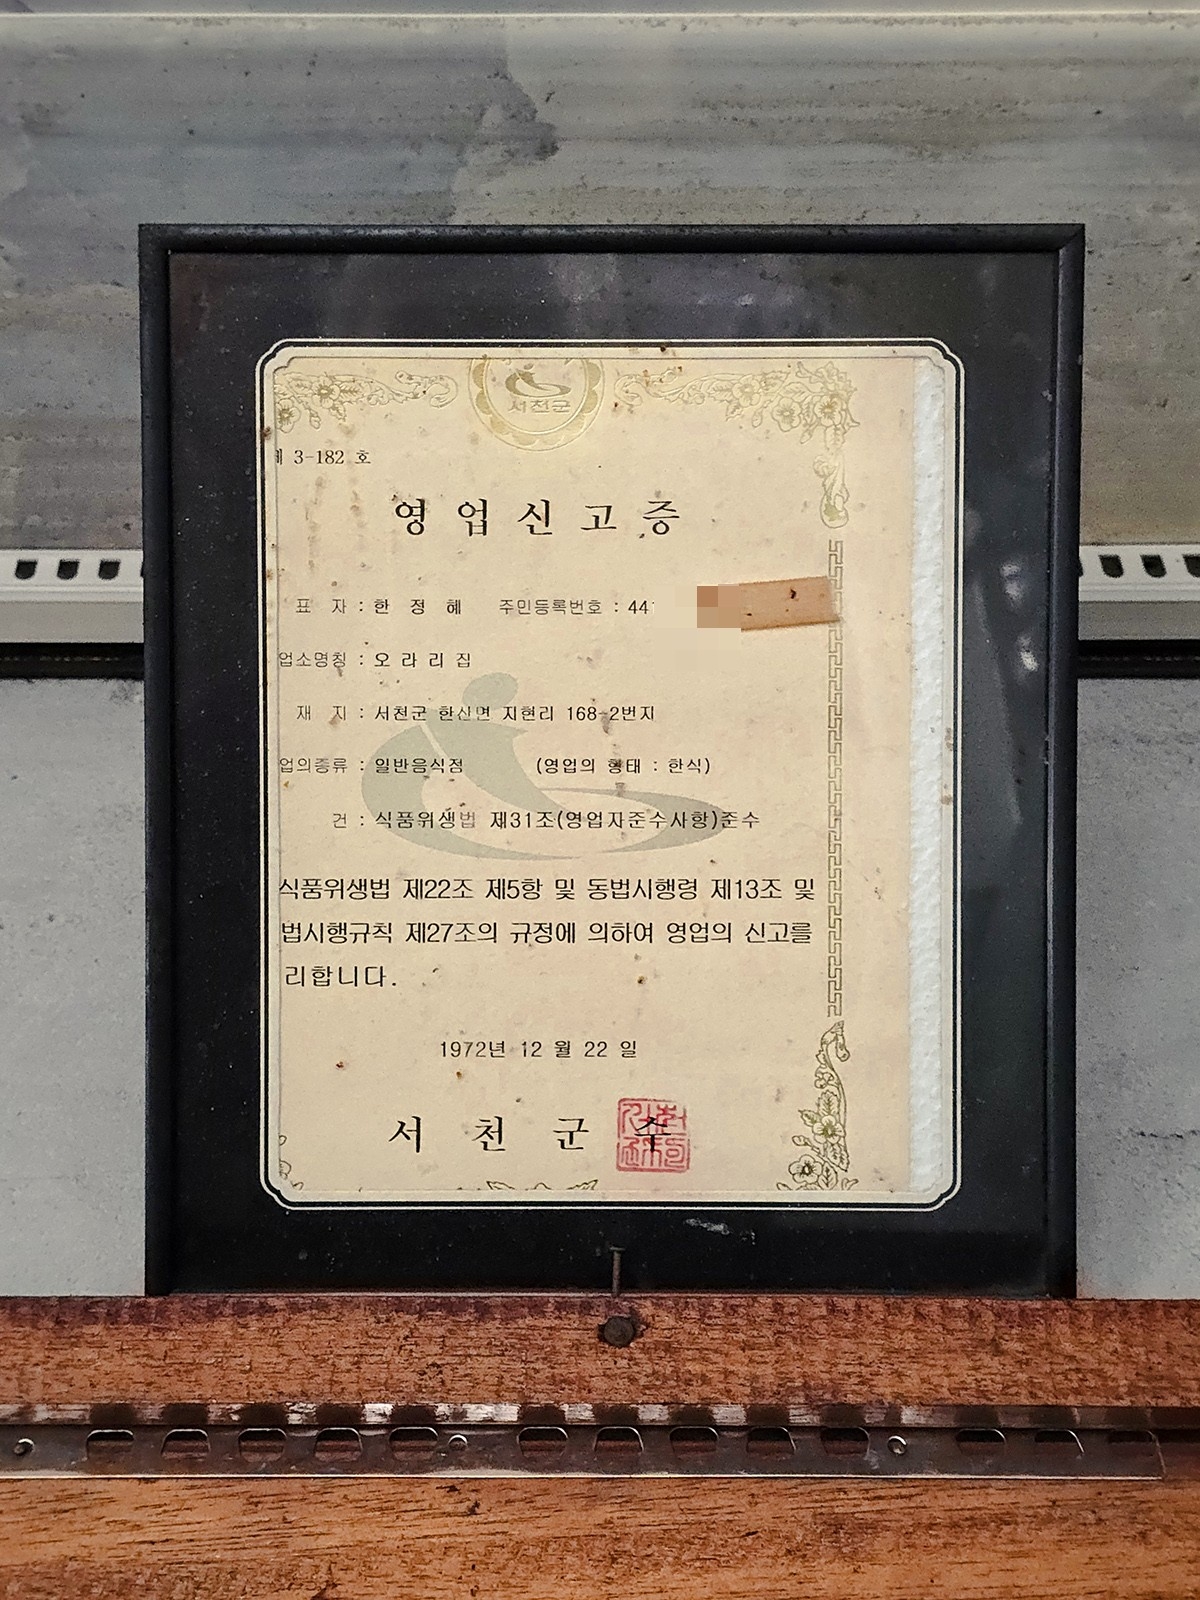 서천군
제 3-182 호
영업신고증
표 자 : 한 정 혜 주민등록번호 : 441
업소명칭 : 오 라 리 집
재 지 : 서천군 한산면 지현리 168-2번지
업의종류 : 일반음식점 (영업의 형태 : 한식)
건 : 식품위생법 제31조(영업자준수사항)준수
식품위생법 제22조 제5항 및 동법시행령 제13조 및
법시행규칙 제27조의 규정에 의하여 영업의 신고를
리합니다.
1972년 12 월 22 일
서 천 군 수